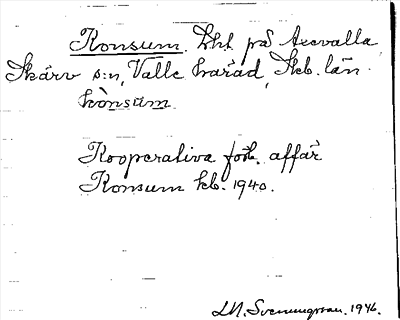 Konsum. Lht. på Axevalla,
Skärv s:n, Valle härad, Skb. län.
kònsùm.
Kooperativa förb. affär
Konsum kb. 1940.
Sveningsson. 1946.